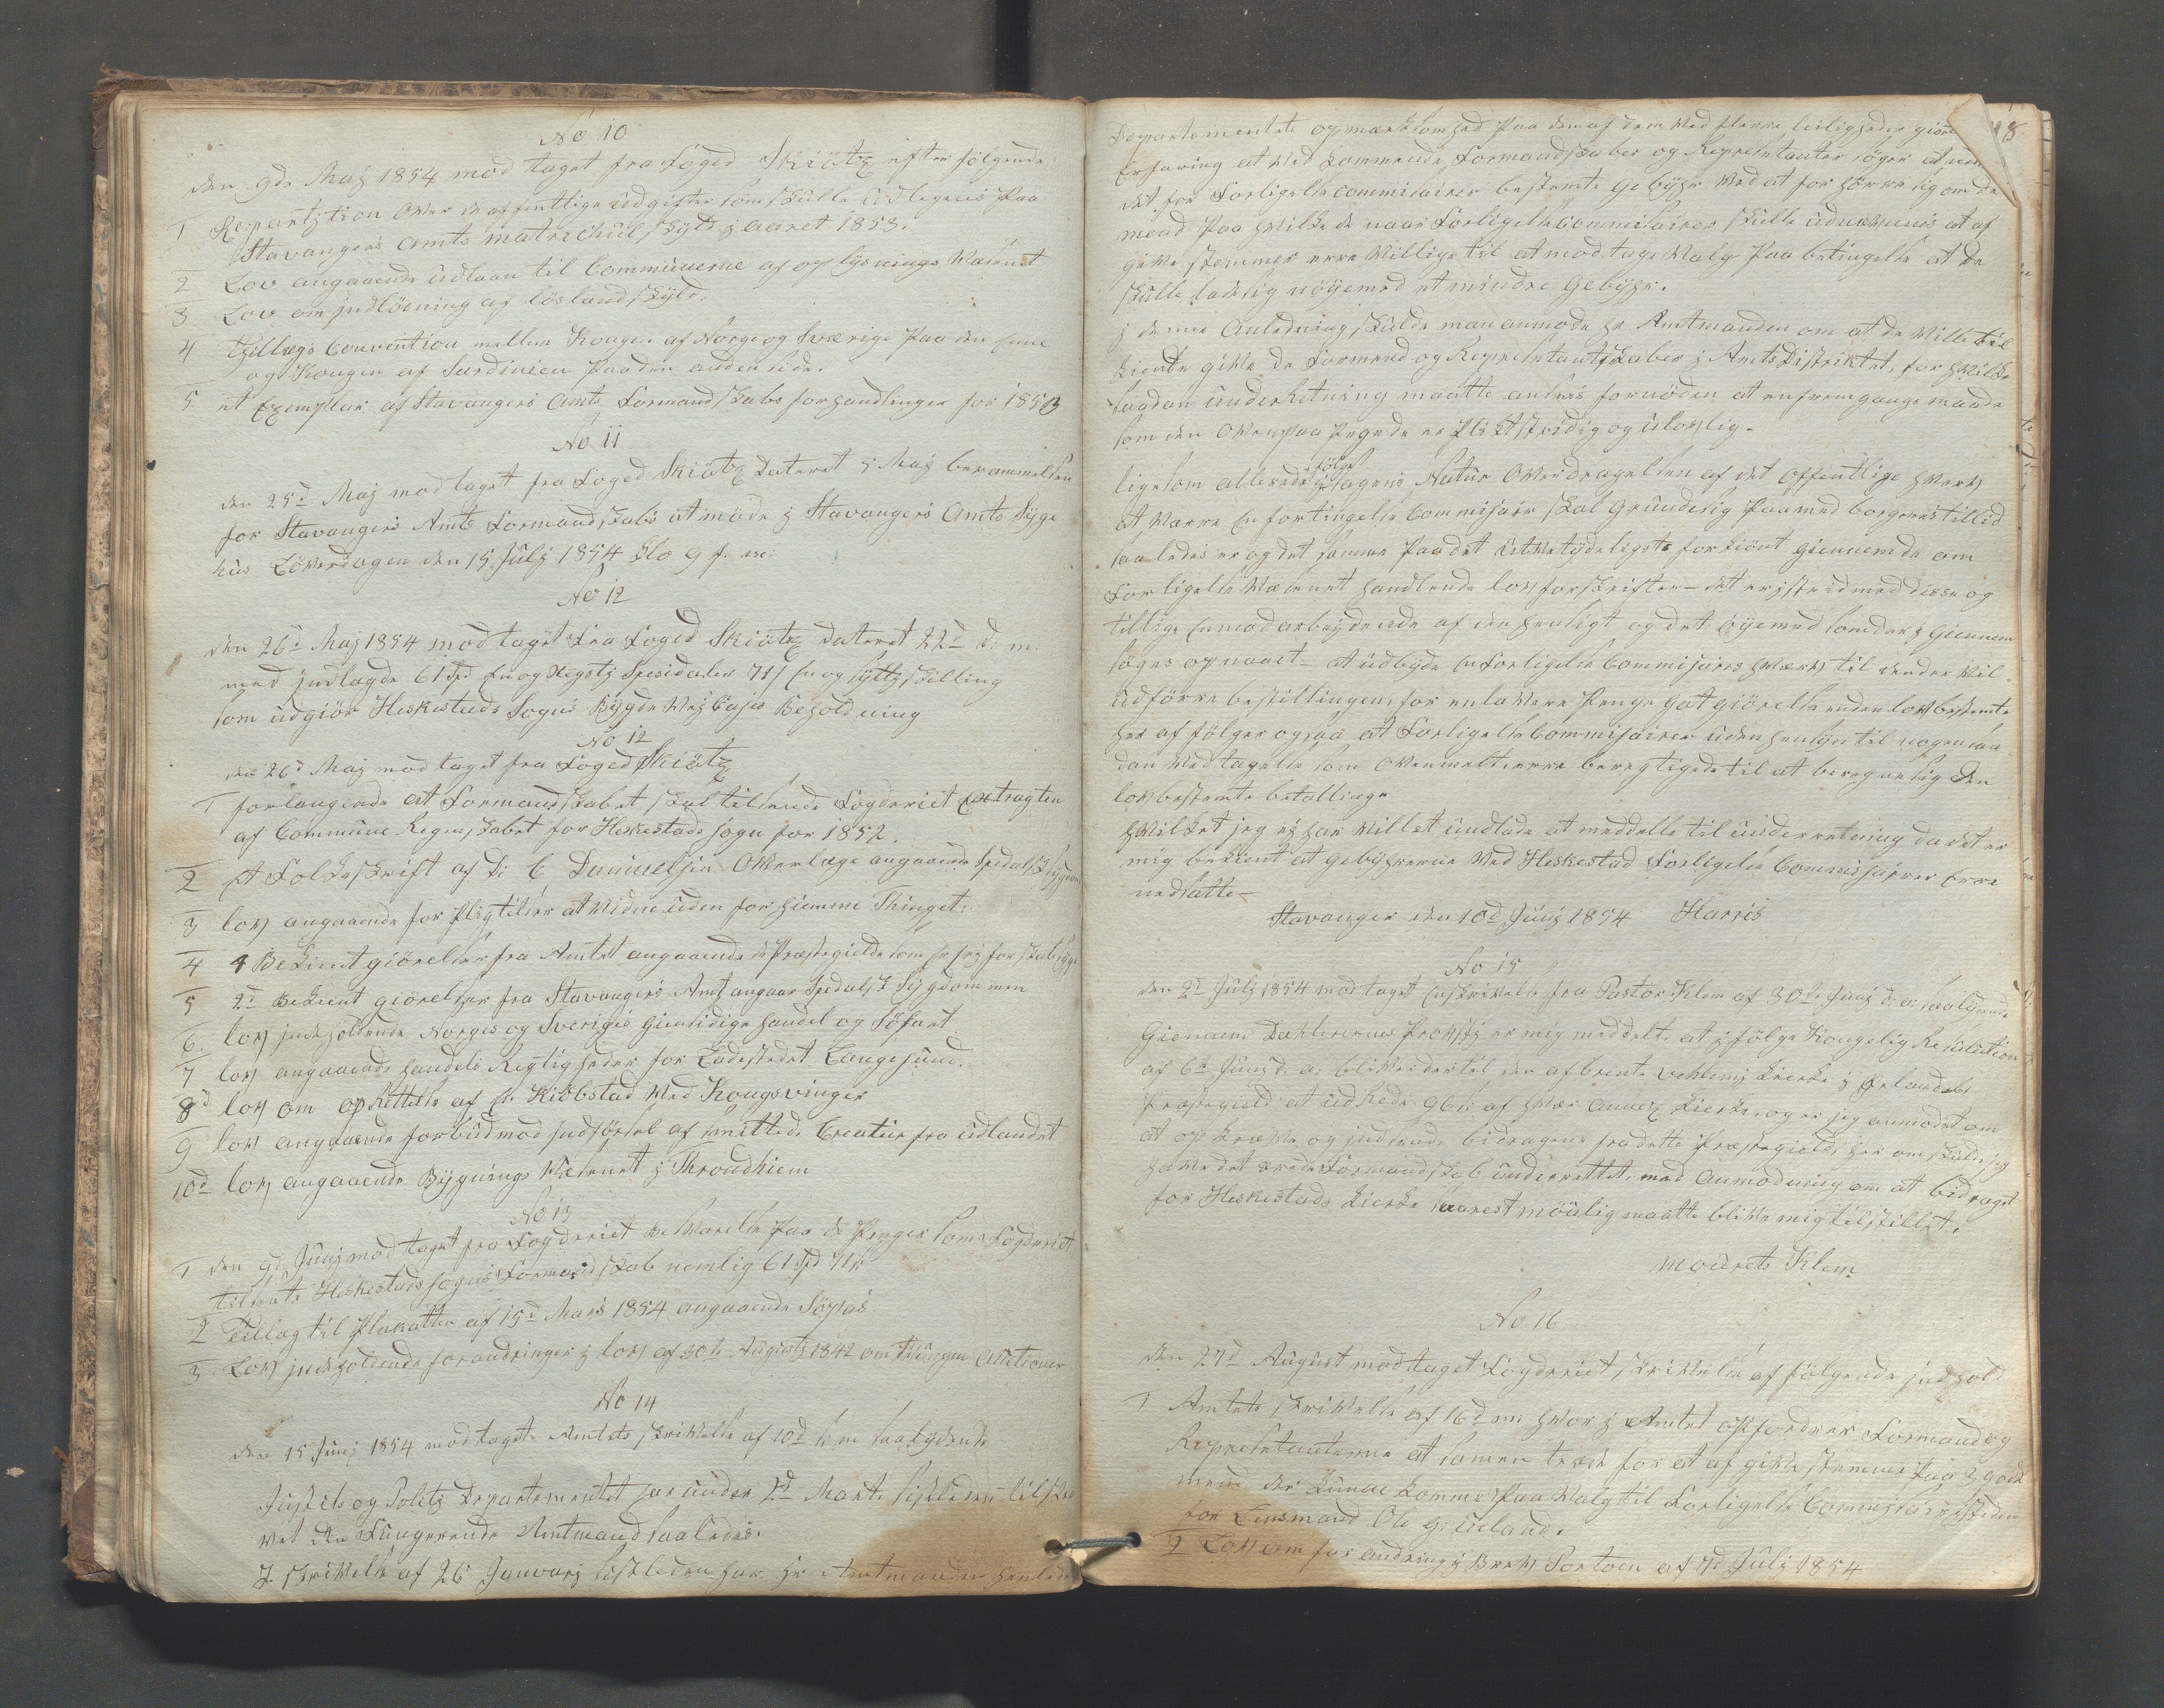 No 10
den 9de Maj 1854 mod taget fra Foged Skiötz efter fölgende
1 Repartjtion Over de offentlige üdgifter som skulle üdlegnes Paa
Stavangers Amts matrichül Skyld j Aaret 1853.
2 Lov angaaende üdlaan til Commünerne af oplysnings Wæsenet
3 Lov om jndlösning af lösland skyld.
4 Tillægs Convention mellem Kongen af Norge og Sværige Paa den ene
og Kongen af Sardinien Paa den anden side.
5 et Exemplar af Stavangers Amts Formandskabs forhandlinger for 1853
No 11
den 25d Maj modtaget fra Foged Skiötz Dateret 5 Maj berammelsen
for Stavangers Amts Formandskabs at möde j Stavangers Amts Syge
hüs Löverdagen den 15 Julj 1854 Klo 9 f. m:
No 12
den 26d Maj 1854 modtaget Fra Foged Skiötz Dateret 22d d: m:
med jndlagde 61 Spd En og Segstj Spesidaler 71 s En og sytti skilling
som üdgiör Heskestads Sogns Bygde Vej Casses Beholdning
No 12
den 26d Maj modtaget fra Foged Skiötz
1 forlangende at Formandskabet skal tilsende Fogderiet Extragten
af Commüne Regnskabet for Heskestads sogn for 1852.
2 Et Folkeskrift af D: C Danielsen Overlæge angaaende Spedalsk sygdom
3 lov angaaende for Pligtelser at Vidne üden for hiemme Thinget:
4 4 Bekientgiörelser fra Amtet angaaende de Præstegielde som er frj for skabsyge
5 2d Bekient giörelser fra Stavangers Amt angaar Spedalsk Sygdommen
6. lov jndeholdende Norges og Sveriges Giensidige handel og Söfart
7 lov angaaende handels Regtigheder for Ladestedet Langesund.
8d lov om oprettelse af En Kiöbstad Ved Kongsvinger
9 lov angaaende forbüd mod jndförsel af smittede Creatür fra üdlandet
10d lov angaaende Bygnings Væsenet j Throndhiem
No 13
1 den 9d Junj modtaget fra Fogderiet Bevarelse Paa de Penger som Fogderiet
tilsente Heskestads sogns Formandskab nemlig 61 Spd 71 s
2 Tillæg til Plakatten af 15d Mars 1854 angaaende Söpas
3 Lov jndeholdende forandringer j lov af 30te Augustj 1842 om Tvungne Auctioner
No 14
den 15 Junj 1854 modtaget Amtets skrivelse af 10d d: m saalydende
Jüstits og Politj Departementet har ünder 2d Mart. sistleden tilskre
vet den Füngerende Amtmand saaledes.
J skrivelse af 26 Januarj sistleden har hr Amtmanden henledet
18
Departementets opmærksomhed Paa den af dem Ved flerre leiligheder giorte
Erfaring at Ved kommende Formandskaber og Representanter söger at
det for Forligelsecommisairer bestemte Gebyhr Ved at for hörre sig om de
mend Paa hvilke de naar Forligelse Commissairer skulle üdnævnes at af
give stemmer erre Villige til at modtage Valg Paa betingelse at de
skulle lade sig nöyemed et mindre Gebyhr.
j denne Anledning skulde man anmode hr Amtmanden om at de Ville til
kiende give de Formend og Representantskaber j Amts Distriktet, for hvilke
saadan ünderretning maatte ansees fornöden at en fremgangs maade
som den Oven Paa Pegede er Pligtstridig og ülovlig.
ligesom allerede j fölge sagens Natür Overdragelsen af det offentlige hverv
at Værre En forligelse Commissair skal Gründe sig Paa medborgeres tillid
saaledes er og det samme Paa det üt vetydeligste forkiönt giennem de om
Forligelse Væsenet handlende lovforskrifter – det er j strid med disse og
tillige En modarbeydende af den hensigt og det öyemed som der j giennem
söges opnaaet – at üdbyde En Forligelse Commissairs hværv til den der Vil
üdförre bestillingen for en lavere Penge godtgiörelse end en lovbestemte
her af fölger ogsaa at Forligelse Commissairer üden hensyn til nogen saa
dan Vedtagelse som Ovenmelt, erre beregtigede til at beregne sig Den
lovbestemte betallinge
hvilket jeg ej har Villet ündlade at meddelle til ünderretning da det er
mig bekient at Gebyhrerne Ved Heskestad Forligelse Commissairer Erre
nedsatte –
Stavanger den 10d Junj 1854 Harris
No 15
den 2d Julj 1854 modtaget En skrivelse fra Pastor Klem af 30te Junj d: a: saalydende
Giennem Dahlernes Provstj er mig meddelt at j fölge Kongelig Resolution
af 6te Junj d: a: bliver der til den afbrente kierke j Ørlandets
Præstegield at üdrede 96 s: af hver Annex kierke, og er jeg anmodet om
at op kræve og jndsende bidragene fra dette Præstegield, her om skulde jeg
have det ærede Formandskab ünderrettet, med Anmodning om at bidraget
for Heskestads kierke snarest möülig maatte blive mig tilstillet.
Mourets Klem
No 16
Den 27d August modtaget Fogderiet skrivelse af fölgende jndhold
1 Amtets skrivelse af 16d m: hvor j Amtet opfordrer Formand og
Representanterne at samen træde for at af give stemme Paa 3 gode
mænd der kunne komme Paa Valg til Forligelse Commissair isteden
for Lensmand Ole G: Ueland.
2 Lov om forandring j Brev Portoen af 7d Julj 1854